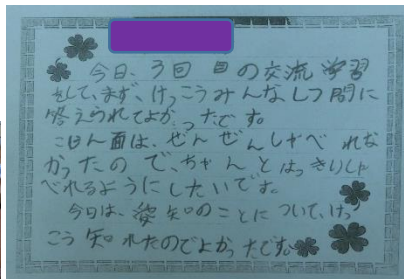 今日、3回目の交流学習
をして、まず、けっこうみんなしつ問に
答えられてよかったです。
に日人面は、ぜんぜんしゃべれな
かったので、ちゃんとはっきりしゃ
べれるようにしたいです。
今日は、愛知のことについて、けっ
こう知れたのでよかったです。